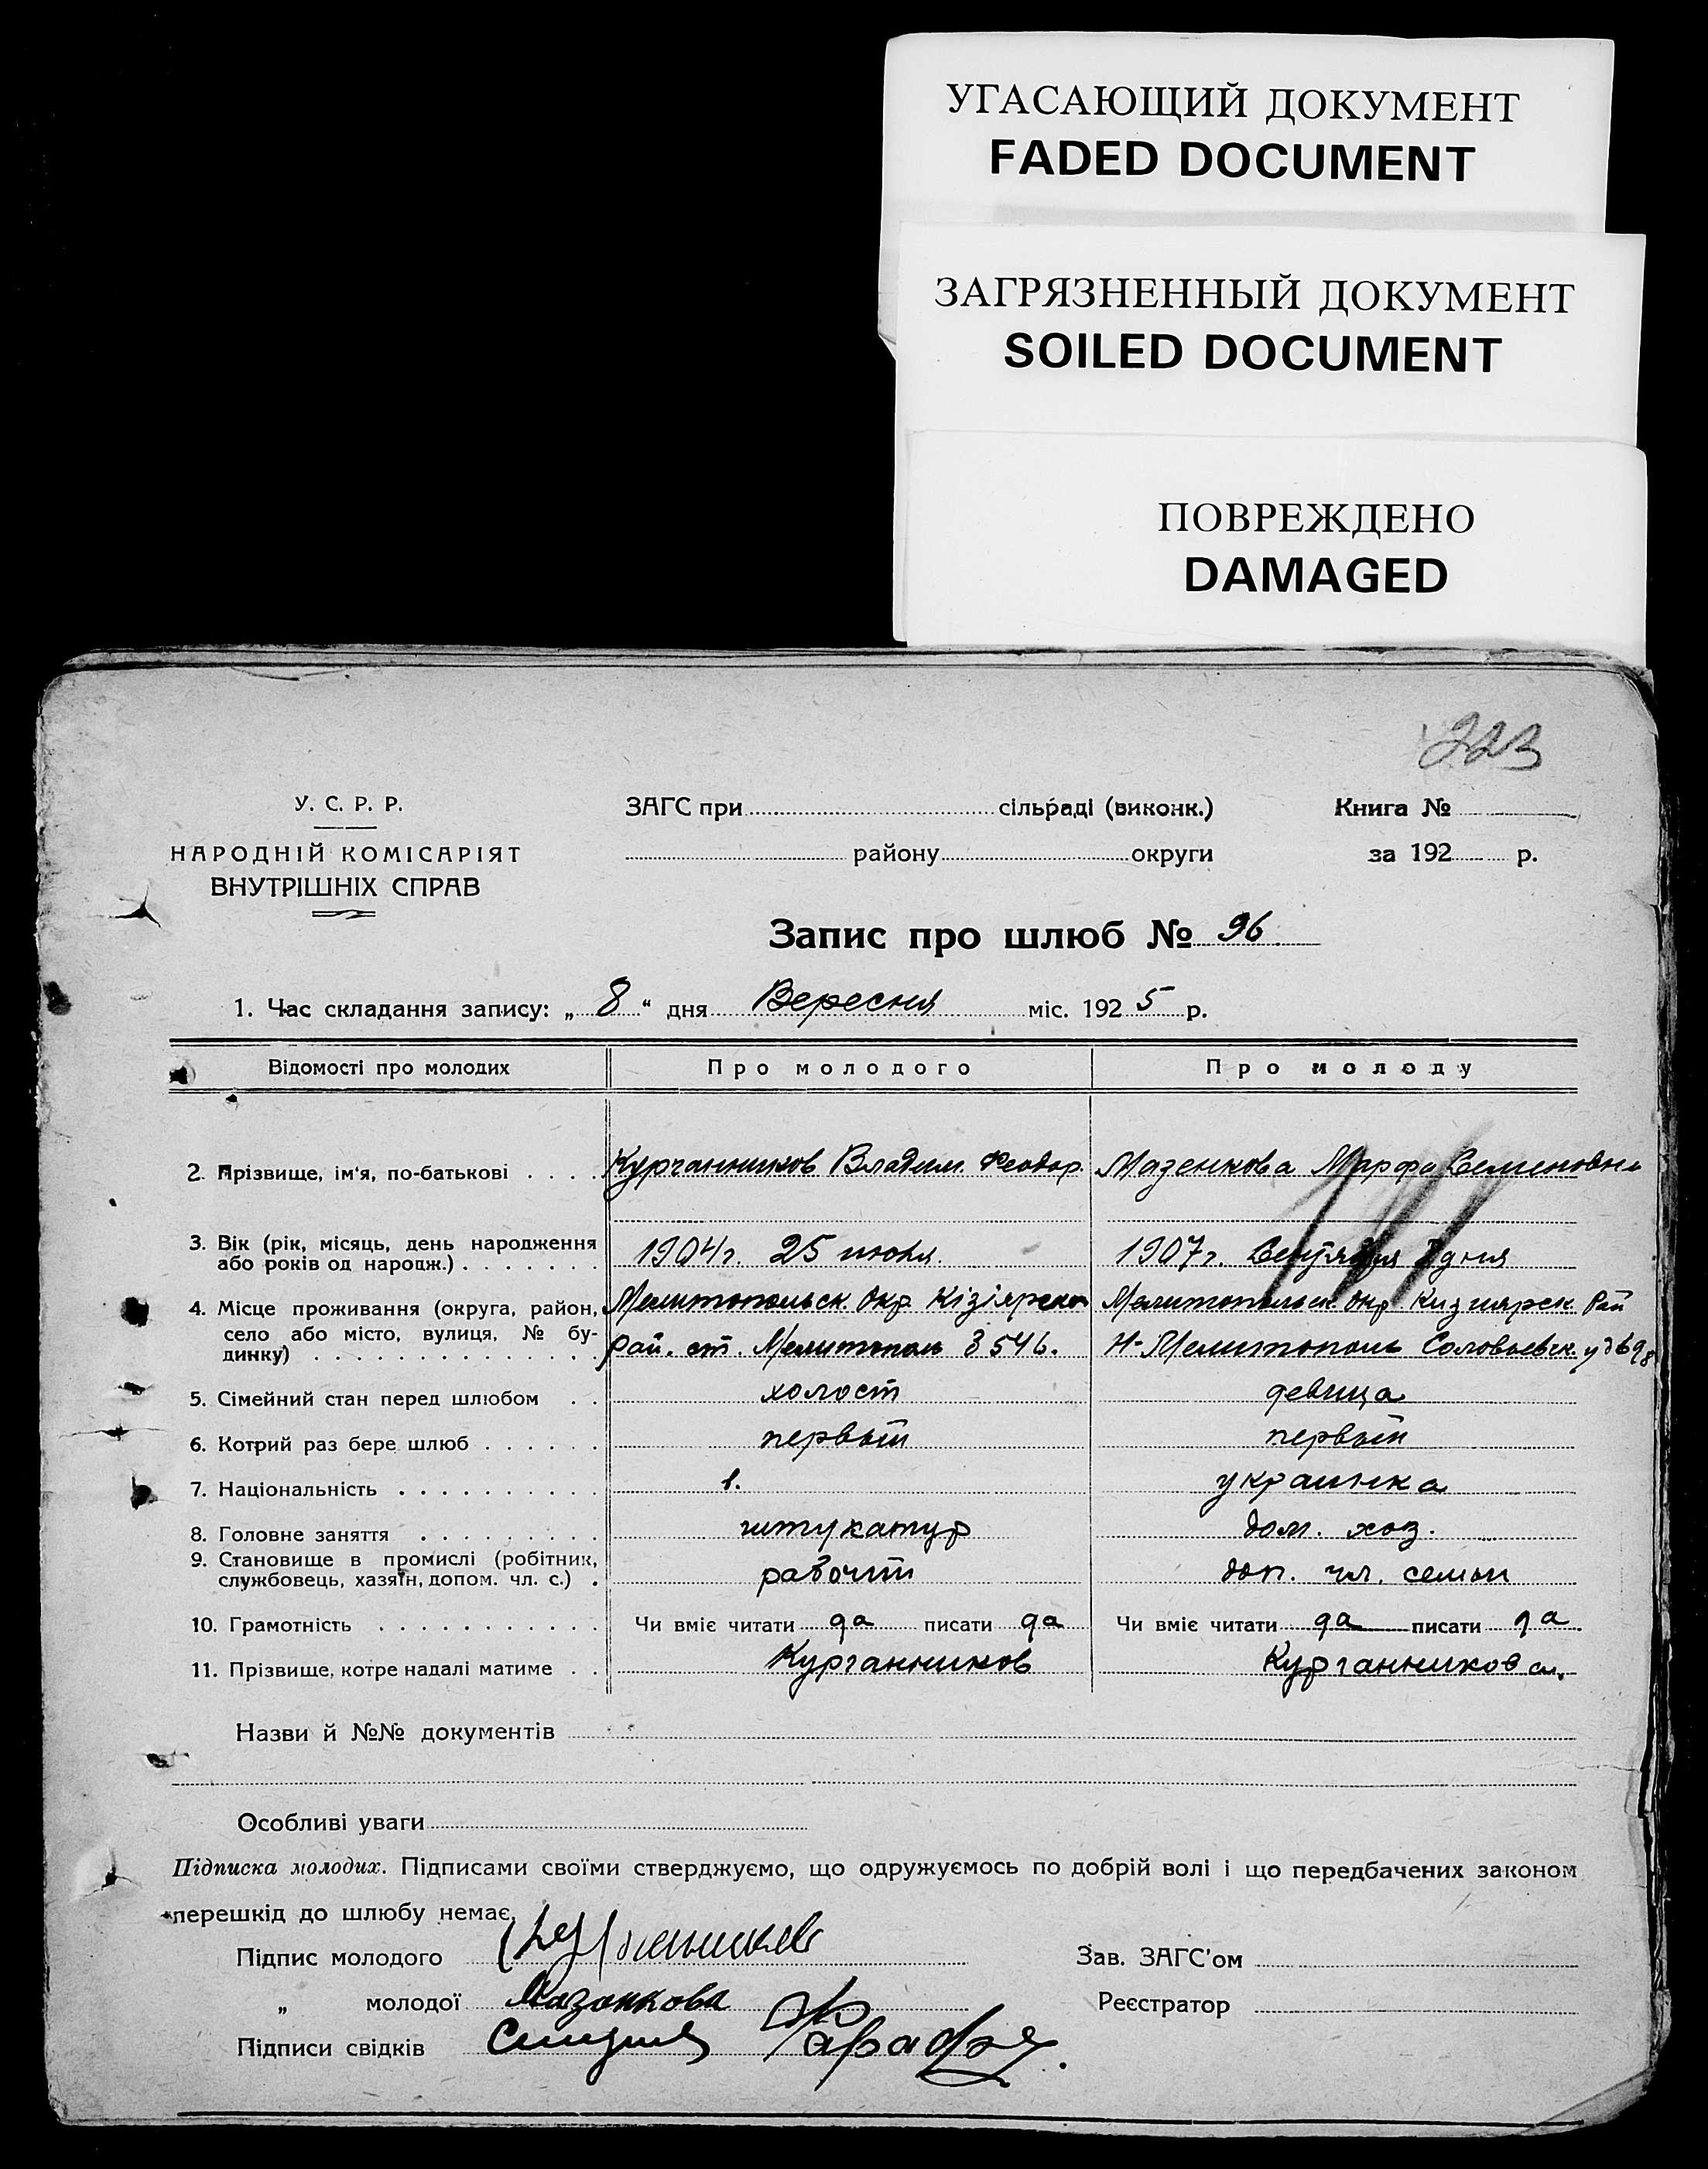 УГАСАЮЩИЙ ДОКУМЕНТ
FADED DOCUMENT
ЗАГРЯЗНЕННЫЙ ДОКУМЕНТ
SOILED DOCUMENT
ПОВРЕЖДЕНО
DAMAGED
223
У. С. Р. Р.
НАРОДНІЙ КОМІСАРІЯТ
ВНУТРІШНІХ СПРАВ
ЗАГС при сільраді (виконк.)
району округи
Книга №
за 192 р.
Запис про шлюб № 96
1. Час складання запису: „ 8 “ дня Вересня міс. 192 5 р.
Відомості про молодих Про молодого Про молоду
2. Прізвище, ім'я, по-батькові Курганников Владим. Феодор. Мазенкова Марфа Семеновна
3. Вік (рік, місяць, день народження або років од народж.) 1904 г. 25 июля. 1907 г. Сентября дня
4. Місце проживання (округа, район, Мелитопольск. Окр. Кізіярско Мелитопольск. Окр Кизиярск. Рай
село або місто, вулиця, № будинку) рай. ст. Мелитополь Н-Мелитополь Соловьевск.
5. Сімейний стан перед шлюбом холост девица
6. Котрий раз бере шлюб первый первый
7. Національність украинка
8. Головне заняття штукатур дом. хоз.
9. Становище в промислі (робітник, службовець, хазяїн, допом. чл. с.) рабочий доп. чл. семьи
10. Грамотність Чи вміє читати да писати да Чи вміє читати да писати да
11. Прізвище, котре надалі матиме Курганников Курганников
Назви й №№ документів
Особливі уваги
Підписка молодих. Підписами своїми стверджуємо, що одружуємось по добрій волі і що передбачених законом
перешкід до шлюбу немає.
Підпис молодого Зав. ЗАГС'ом
„ молодої Мазанкова Реєстратор
Підписи свідків